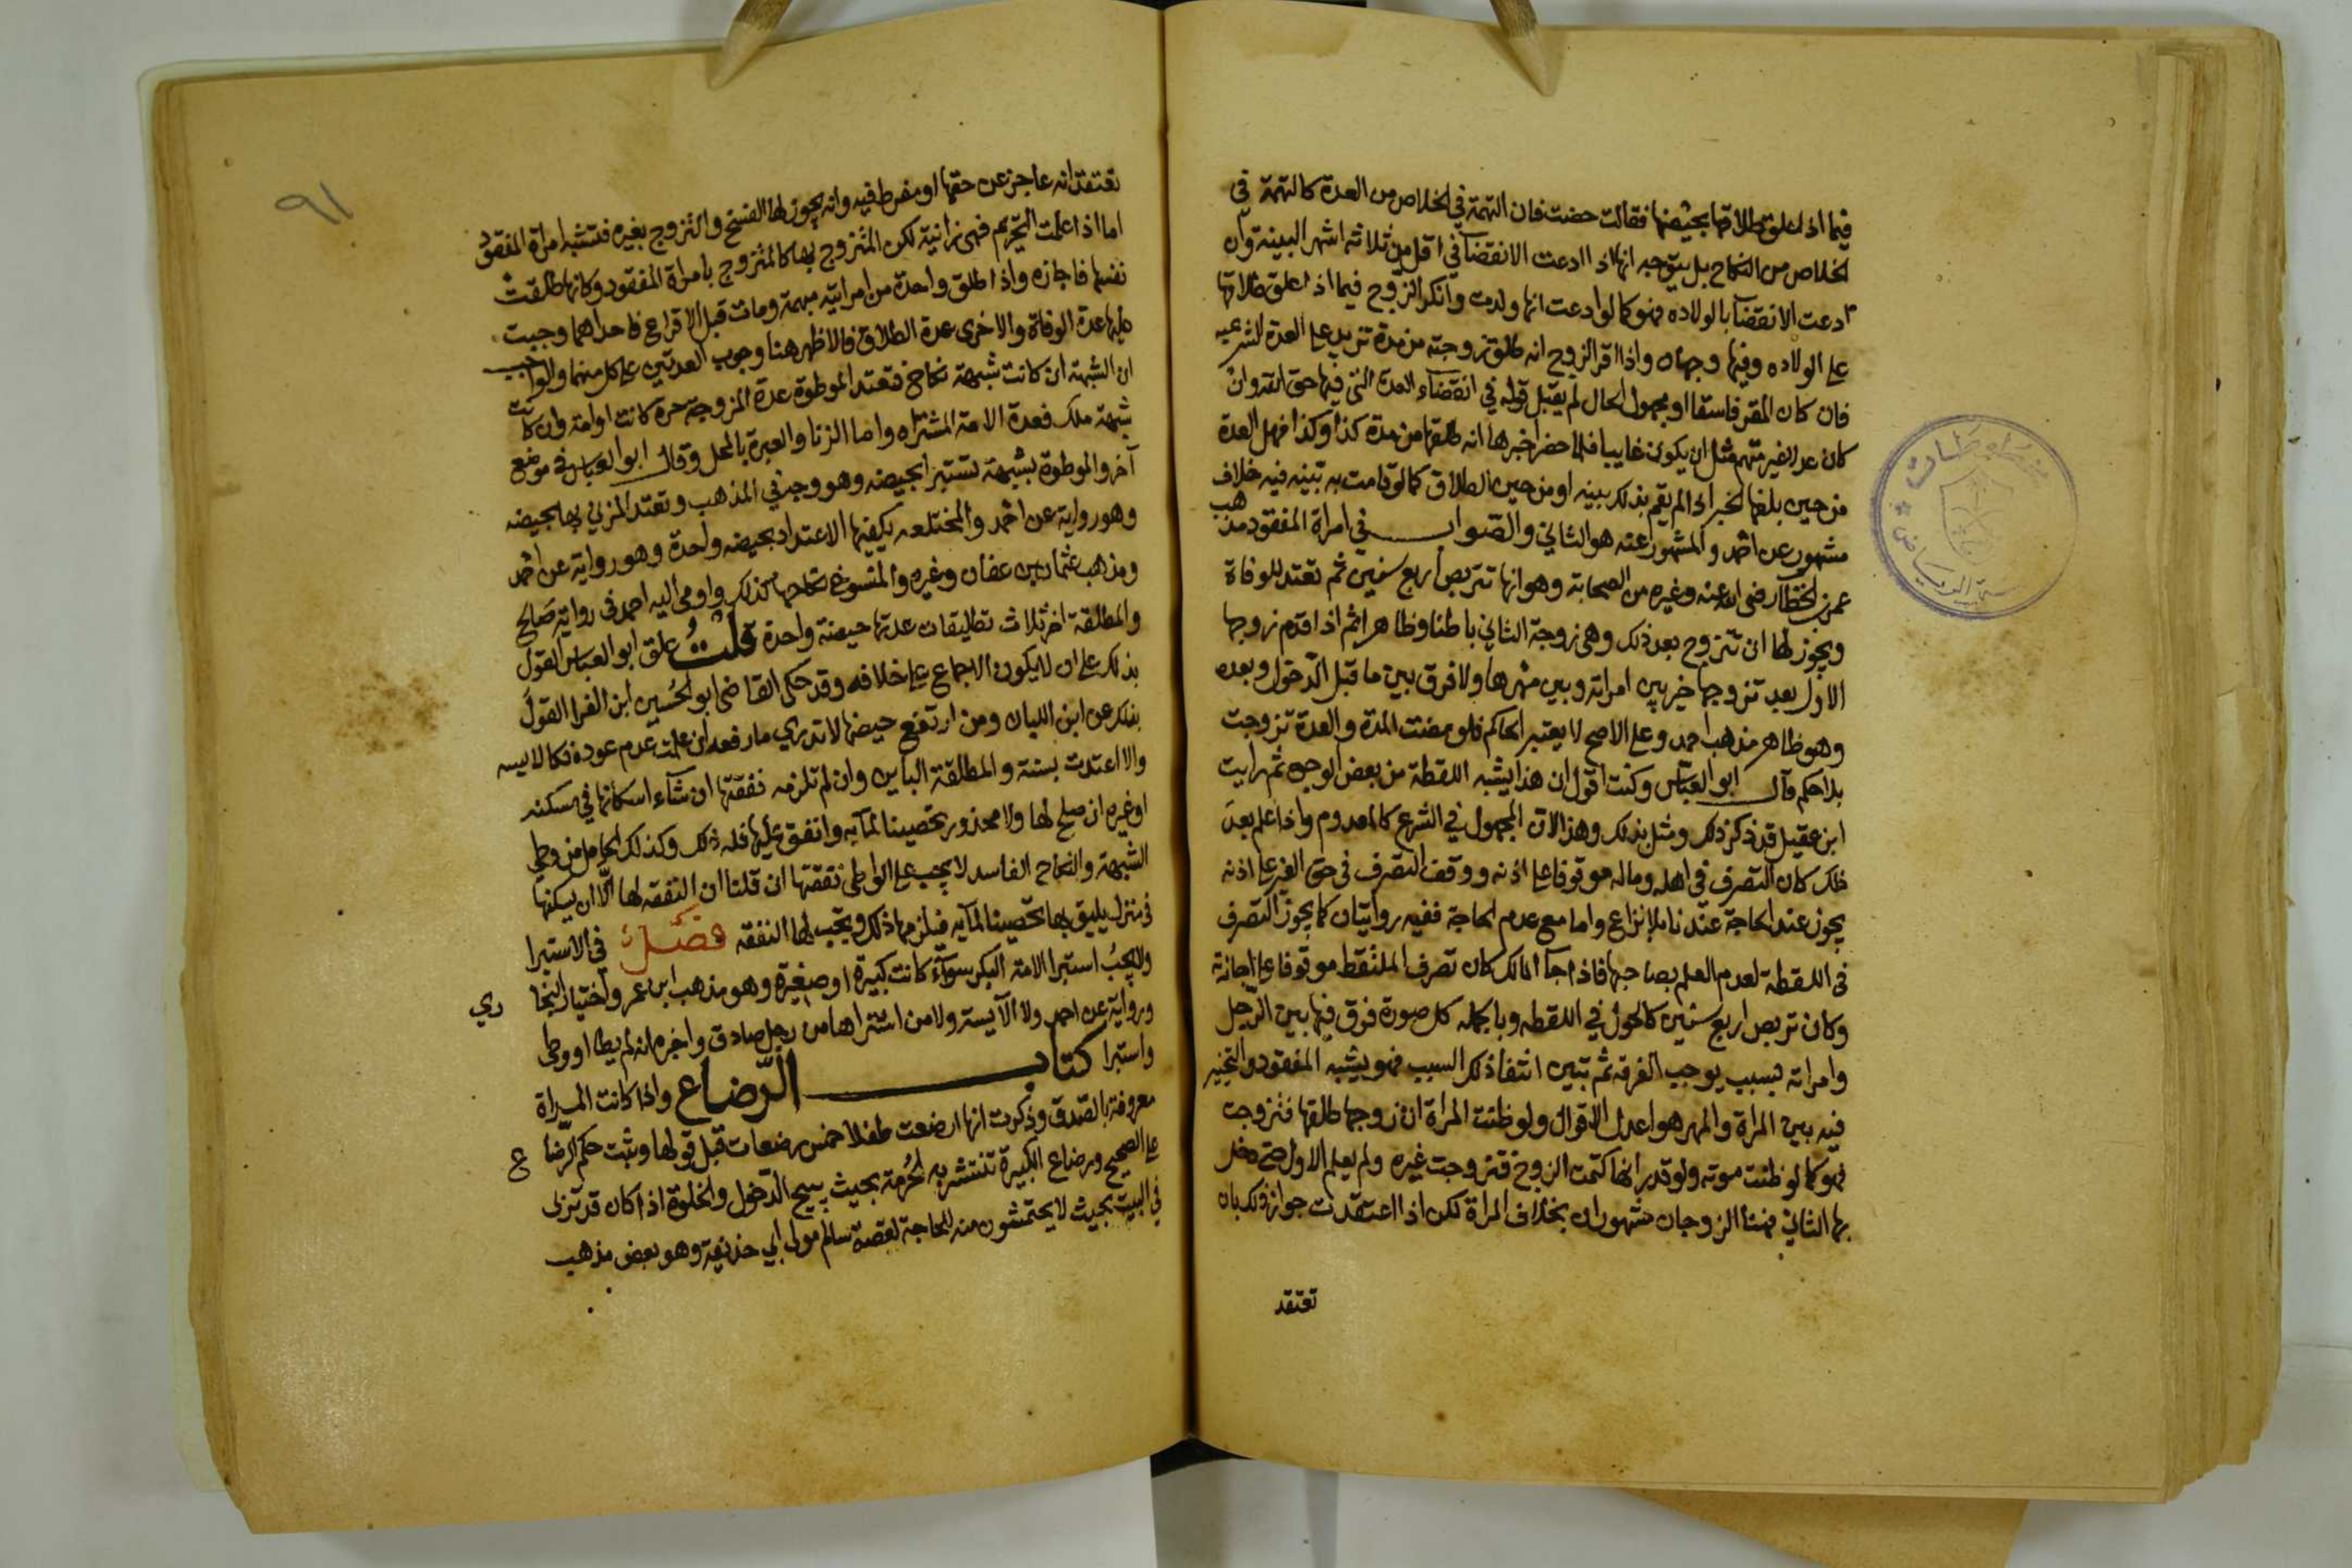 فيما اذا علق طلاقها بحيضها فقالت حضت فان التهمة في الخلاص من العدة كالتهمة في
الخلاص من النكاح بل يتوجه انها اذا ادعت الانقضا في اقل من ثلاثة اشهر البينة وان
ادعت الانقضا بالولاده فهو كما لو ادعت انها ولدت وانكر الزوج فيما اذا علق طلاقها
على الولاده وفيها وجهان واذا اقر الزوج انه طلق زوجته من مدة تزيد على العدة الشرعيه
فان كان المقر فاسقا او مجهول الحال لم يقبل قوله في انقضاء العدة التي فيها حق الله وان
كان عدلا غير متهم مثل ان يكون غايبا فلما حضر اخبرها انه طلقها من مدة كذا وكذا فهل العدة
من حين بلغها الخبر اذا لم يقم بذلك بينه او من حين الطلاق كما لو قامت به بينه فيه خلاف
مشهور عن احمد والمشهور عنه هو الثاني والصواب في امراة المفقود مذهب
عمر بن الخطاب رضي الله عنه وغيره من الصحابة وهو انها تتربص اربع سنين ثم تعتد للوفاة
ويجوز لها ان تتزوج بعد ذلك وهي زوجة الثاني باطنا وظاهرا ثم اذا قدم زوجها
الاول بعد تزوجها خير بين امراته وبين مهرها ولا فرق بين ما قبل الدخول وبعده
وهو ظاهر مذهب احمد وعلى الاصح لا يعتبر الحاكم فلو مضت المدة والعدة تزوجت
بلا حكم قال ابو العباس وكنت اقول ان هذا يشبه اللقطة من بعض الوجوه ثم رايت
ابن عقيل قد ذكر ذلك ومثل بذلك وهذا لان المجهول في الشرع كالمعدوم واذا علم بعد
ذلك كان التصرف في اهله وماله موقوفا على اذنه ووقف التصرف في حق الغير على اذنه
يجوز عند الحاجة عندنا بلا نزاع واما مع عدم الحاجة ففيه روايتان كما يجوز التصرف
في اللقطة لعدم العلم بصاحبها فاذا جا المالك كان تصرف الملتقط موقوفا على اجازة
وكان تربص اربع سنين كالحول في اللقطه وبالجمله كل صورة فرق فيها بين الرجل
وامراته بسبب يوجب الفرقه ثم تبين انتفا ذلك السبب فهو يشبه المفقود والتخيير
فيه بين المراة والمهر هو اعدل الاقوال ولو ظنت المراة ان زوجها طلقها فتزوجت
فهو كما لو ظنت موته ولو قدر انها كتمت الزوج فتزوجت غيره ولم يعلم الاول حتى دخل
بها الثاني فهنا الزوجان مشهوران بخلاف المراة لكن اذا اعتقدت جواز ذلك بان
تعتقد
٩١
تعتقد انه عاجز عن حقها او مفرط فيه وانه يجوز لها الفسخ والتزوج بغيره فتشبه امراة المفقود
اما اذا علمت التحريم فهي زانية لكن المتزوج بها كالمتزوج بامراة المفقود وكانها طلقت
نفسها فاجازه واذا طلق واحدة من امراتيه مبهمة ومات قبل الاقراع فاحداهما وجبت
عليها عدة الوفاة والاخرى عدة الطلاق فالاظهر هنا وجوب العدتين على كل منهما والواجب
ان الشبهة ان كانت شبهة نكاح فتعتد الموطوة عدة المزوجة حرة كانت او امة وان كانت
شبهة ملك فعدة الامة المشتراه واما الزنا والعبرة بالمحل وقال ابو العباس في موضع
آخر والموطوة بشبهة تستبرا بحيضه وهو وجه في المذهب وتعتد المزني بها بحيضه
وهو رواية عن احمد والمختلعه يكفيها الاعتداد بحيضه واحدة وهو رواية عن احمد
ومذهب عثمان بن عفان وغيره والمفسوخ نكاحها كذلك واومى اليه احمد في رواية صالح
والمطلقة اخر ثلاث تطليقات عدتها حيضة واحدة قلت علق ابو العباس القول
بذلك على ان لا يكون الاجماع على خلافه وقد حكى القاضي ابو الحسين ابن الفرا القول
بذلك عن ابن اللبان ومن ارتفع حيضها لا تدري ما رفعه ان علمت عدم عوده فكالايسه
والا اعتدت بسنة والمطلقة الباين وان لم تلزمه نفقتها ان شاء اسكانها في مسكنه
او غيره ان صلح لها ولا محذور تحصينا لمآيه وانفق عليها فله ذلك وكذلك الحامل من وطي
الشبهة والنكاح الفاسد لا يجب على الواطي نفقتها ان قلنا ان النفقه لها الا ان يسكنها
في منزل يليق بها تحصينا لمآيه فيلزمها ذلك ويجب لها النفقه فصل في الاستبرا
ولا يجب استبرا الامة البكر سوآء كانت كبيرة او صغيرة وهو مذهب ابن عمر واختيار البخاري
ورواية عن احمد ولا الآيسة ولا من اشتراها من رجل صادق واخبره انه لم يطا او وطي
واستبرا كتاب الرضاع واذا كانت المراة
معروفة بالصدق وذكرت انها ارضعت طفلا خمس رضعات قبل قولها ويثبت حكم الرضاع
على الصحيح ورضاع الكبيرة تنتشر به الحرمة بحيث يبيح الدخول والخلوة اذا كان قد تربى
في البيت بحيث لا يحتمشون منه للحاجة لقصة سالم مولى ابي حذيفة وهو بعض مذهب